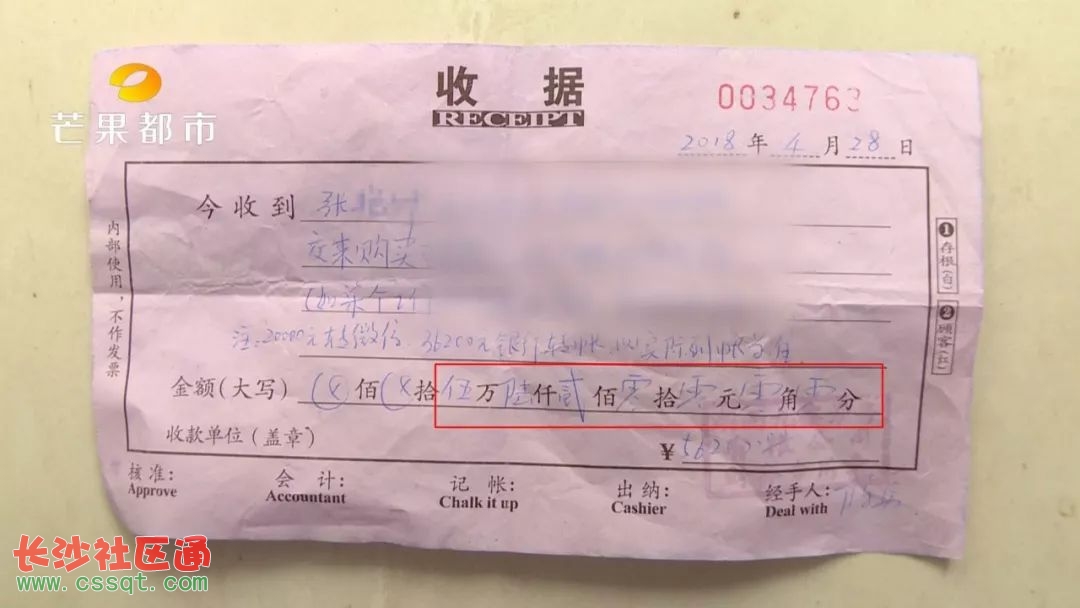 芒果都市
收 据
RECEIPT
0034763
2018 年 4 月 28 日
今收到 张
交来购买
注:20000元转微信.36200元银行转帐.以实际到帐为准.
金额(大写) ⊗佰⊗拾伍万陆仟贰佰零拾零元零角零分
收款单位(盖章) ¥56200
核准: 会 计: 记 帐: 出 纳: 经手人:
Approve Accountant Chalk it up Cashier Deal with
内部使用,不作发票
❶存根(白)
❷顾客(红)
长沙社区通
www.cssqt.com